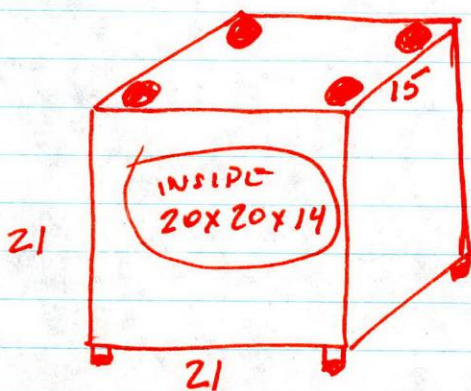 15
INSIDE
20x20x14
21
21